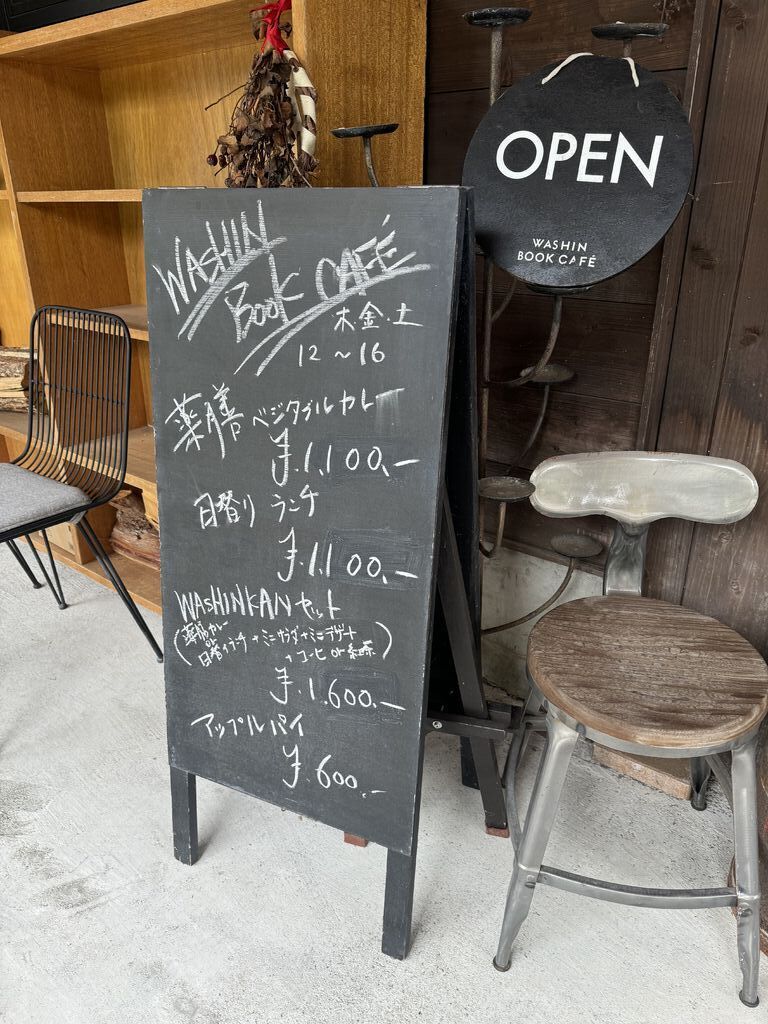 WASHIN
BOOK CAFÉ
木.金.土
12 ~ 16
薬膳 ベジタブルカレー
¥.1,100.-
日替り ランチ
¥.1,100.-
WASHINKAN セット
(薬膳カレー
or
日替りランチ + ミニサラダ + ミニデザート
+ コーヒ or 紅茶)
¥.1.600.-
アップルパイ
¥.600.-
OPEN
WASHIN
BOOK CAFÉ